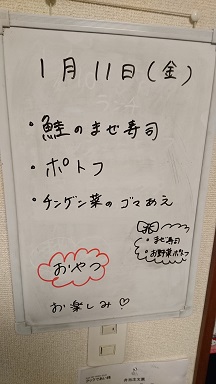 1月11日(金)
・鮭のまぜ寿司
・ポトフ
・チンゲン菜のゴマあえ
・まぜ寿司
・お野菜ポトフ
おやつ
お楽しみ♡